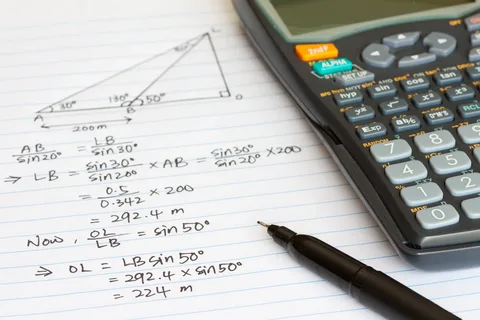 L
20°
30°
130°
50°
A
B
O
200m
AB/sin20° = LB/sin30°
⇒ LB = sin30°/sin20° × AB = sin30°/sin20° × 200
= 0.5/0.342 × 200
= 292.4 m
Now, OL/LB = sin50°
⇒ OL = LB sin50°
= 292.4 × sin50°
= 224 m
2ndF
ALPHA
SETUP
hyp
sin
cos
tan
Exp
RCL
7
4
5
1
2
3
0